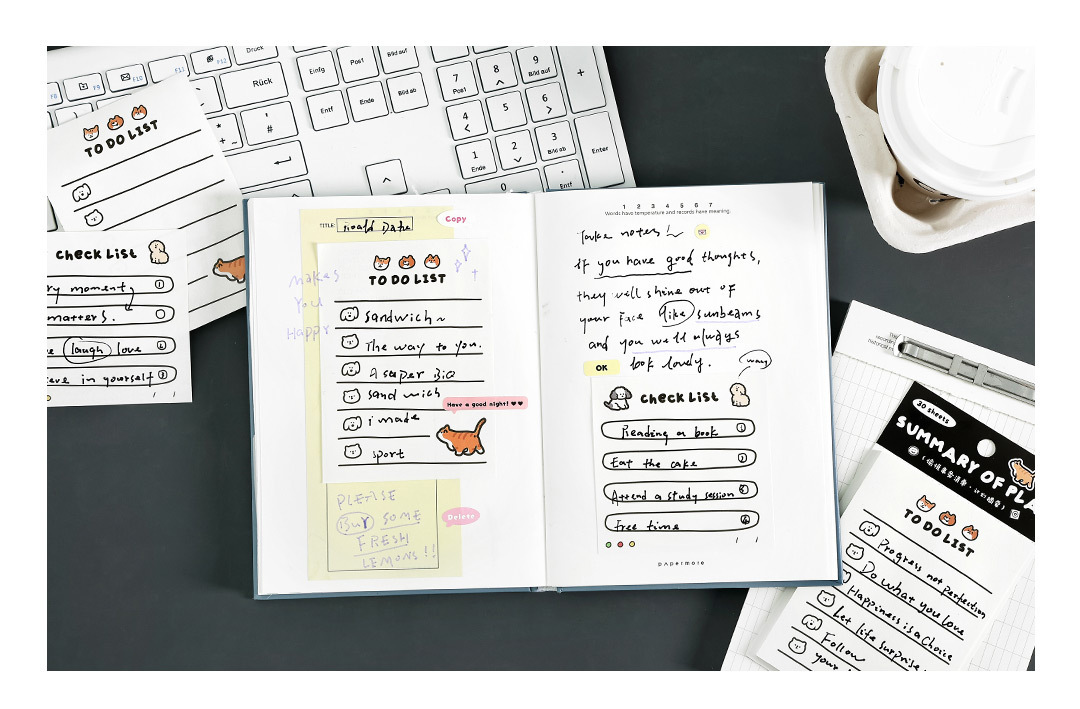 Druck
Rück
F9
F10
F11
F12
Einfg
Post
Bild auf
Entf
Ende
Bild ab
7
8
9
Post
Bild auf
+
4
5
6
1
2
3
Ende
Bild ab
Enter
0
Entf
'
#
TO DO LIST
check List
ry moment,
matters.
laugh love
eve in yourself
makes
You
Happy
TITLE:
Copy
TO DO LIST
sandwich~
The way to you.
a super BiQ
sand wich
Have a good night! ♥♥
i made
sport
PLEASE
BUY SOME
FRESH
LEMONS!!
Delete
1 2 3 4 5 6 7
Words have temperature and records have meaning.
Take notes!
If you have good thoughts,
they will shine out of
your face like sunbeams
and you will always
look lovely.
OK
check List
Reading a book
Eat the cake
Attend a study session
Free time
papermore
30 sheets
SUMMARY OF PLA
TO DO LIST
Progress not perfection
Do what you love
Happiness is a choice
Let life surprise
Follow
your